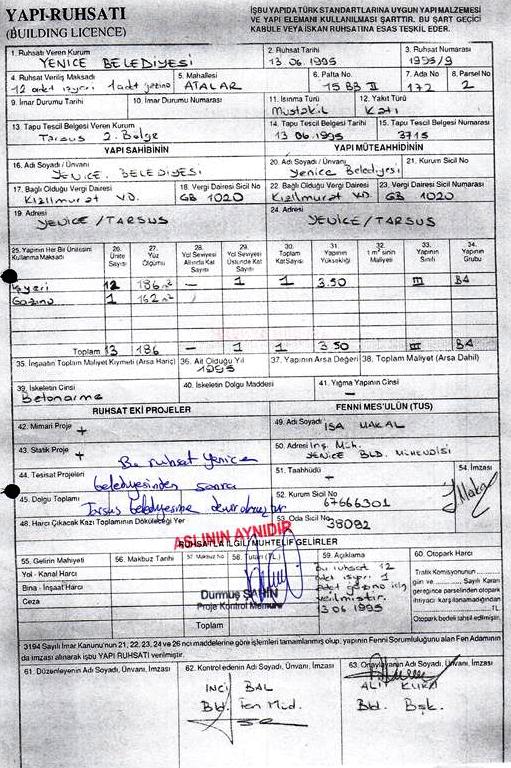 YAPI-RUHSATI
(BUILDING LICENCE)
İŞBU YAPIDA TÜRK STANDARTLARINA UYGUN YAPI MALZEMESİ
VE YAPI ELEMANI KULLANILMASI ŞARTTIR. BU ŞART GEÇİCİ
KABULE VEYA İSKAN RUHSATINA ESAS TEŞKİL EDER.
1. Ruhsatı Veren Kurum
YENİCE BELEDİYESİ
2. Ruhsat Tarihi
13.06.1995
3. Ruhsat Numarası
1995/9
4. Ruhsat Veriliş Maksadı
12 adet işyeri 1 adet gazino
5. Mahallesi
ATALAR
6. Pafta No.
15 B3 II
7. Ada No
172
8. Parsel No
2
9. İmar Durumu Tarihi
10. İmar Durumu Numarası
11. Isınma Türü
Müstakil
12. Yakıt Türü
Katı
13. Tapu Tescil Belgesi Veren Kurum
Tarsus 2. Bölge
14. Tapu Tescil Belgesi Tarihi
13 06.1995
15. Tapu Tescil Belgesi Numarası
3715
YAPI SAHİBİNİN
YAPI MÜTEAHHİDİNİN
16. Adı Soyadı / Ünvanı
YENİCE BELEDİYESİ
20. Adı Soyadı / Ünvanı
Yenice Belediyesi
21. Kurum Sicil No
17. Bağlı Olduğu Vergi Dairesi
Kızılmurat V.D.
18. Vergi Dairesi Sicil No
GB 1020
22. Bağlı Olduğu Vergi Dairesi
Kızılmurat V.D.
23. Vergi Dairesi Sicil Numarası
GB 1020
19. Adresi
YENİCE/TARSUS
24. Adresi
YENİCE/TARSUS
25. Yapının Her Bir Ünitesini Kullanma Maksadı
26. Ünite Sayısı
27. Yüz Ölçümü
28. Yol Seviyesi Altında Kat Sayısı
29. Yol Seviyesi Üstünde Kat Sayısı
30. Toplam Kat Sayısı
31. Yapının Yüksekliği
32. 1 m² sinin Maliyesi
33. Yapının Sınıfı
34. Yapının Grubu
İşyeri 12 186 m² — 1 1 3.50 III B4
Gazino 1 162 m²
Toplam 13 186 — 1 1 3.50 III B4
35. İnşaatın Toplam Maliyet Kıymeti (Arsa Hariç)
36. Ait Olduğu Yıl
1995
37. Yapının Arsa Değeri
38. Toplam Maliyet (Arsa Dahil)
39. İskeletin Cinsi
Betonarme
40. İskeletin Dolgu Maddesi
41. Yığma Yapının Cinsi
—
RUHSAT EKİ PROJELER
FENNİ MES'ULÜN (TUS)
42. Mimari Proje +
49. Adı Soyadı
İSA MAKAL
43. Statik Proje +
50. Adresi İnş. Müh.
YENİCE BLD. MÜHENDİSİ
44. Tesisat Projeleri
51. Taahhüdü
—
54. İmzası
Bu ruhsat Yenice
belediyesinden sonra
Tarsus belediyesine
45. Dolgu Toplamı
52. Kurum Sicil No
67666301
48. Harcı Çıkacak Kazı Toplamının Döküleceği Yer
53. Oda Sicil No
38092
ASLININ AYNIDIR
RUHSATLA İLGİLİ MUHTELİF GELİRLER
55. Gelirin Mahiyeti
56. Makbuz Tarihi
57. Makbuz No
58. Tutarı (TL.)
59. Açıklama
60. Otopark Harcı
Yol - Kanal Harcı
Bina - İnşaat Harcı
Ceza
Toplam
Bu ruhsat 12
adet işyeri 1
adet gazino için
verilmiştir.
13 06 1995
Trafik Komisyonunun
gün ve Sayılı Kararı
gereğince parselinden otopark
ihtiyacı karşılanamadığından
TL
Otopark bedeli tahsil edilmiştir.
Durmuş ŞAHİN
Proje Kontrol Memuru
3194 Sayılı İmar Kanunu'nun 21, 22, 23, 24 ve 26 ncı maddelerine göre işlemleri tamamlanmış olup, yapının Fenni Sorumluluğunu alan Fen Adamının
da imzası alınarak işbu YAPI RUHSATI verilmiştir.
61. Düzenleyenin Adı Soyadı, Ünvanı, İmzası
62. Kontrol edenin Adı Soyadı, Ünvanı, İmzası
63. Onaylayanın Adı Soyadı, Ünvanı, İmzası
İNCİ BAL
Bld. Fen Müd.
Bld. Bşk.